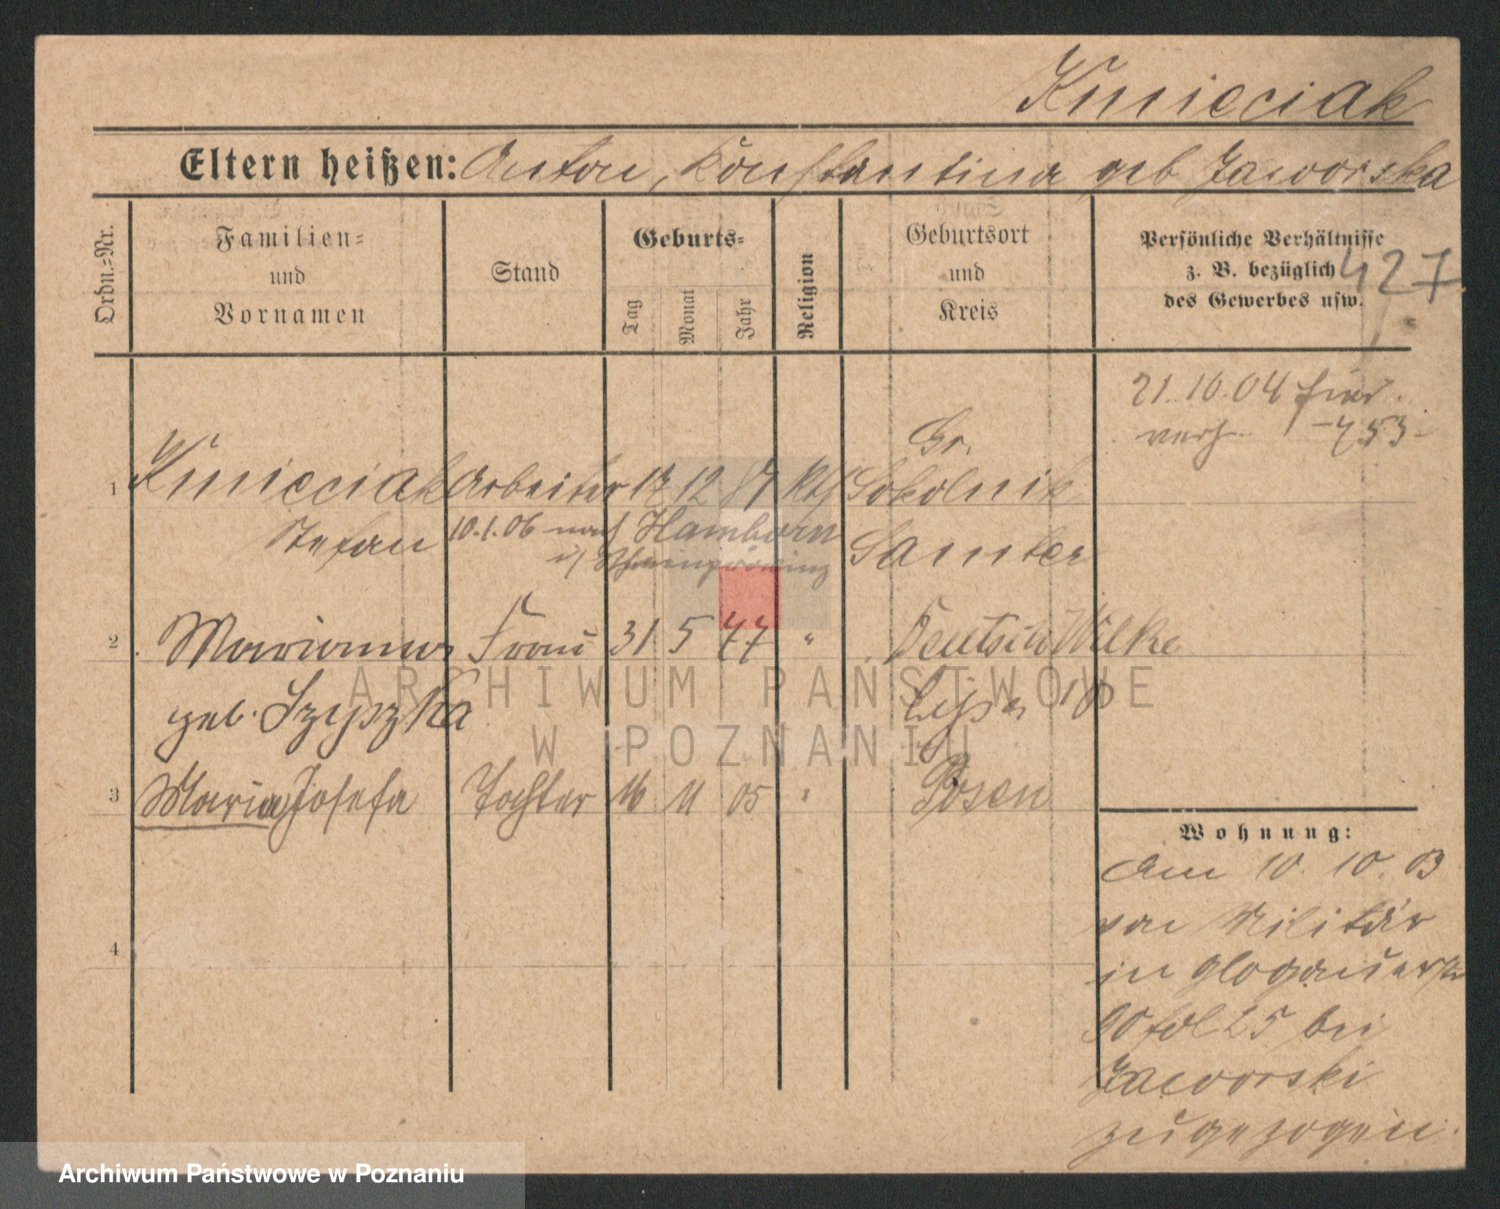 Kmieciak
Eltern heißen: Anton, Konstantina geb Jaworska
Ordn.-Nr.
Familien-
und
Vornamen
Stand
Geburts-
Tag
Monat
Jahr
Religion
Geburtsort
und
Kreis
Persönliche Verhältnisse
z. B. bezüglich
des Gewerbes usw.
427
21.10.04 hier
verh. 753
Gr.
1 Kmieciak Arbeiter 17 12 kth Sokolnik
Stefan 10.1.06 nach Hamborn Samter
i/ Rheinprovinz
2 Marianna Frau 31 5 77 " Deutsch Wilke
geb. Szyszka Lissa
3 Maria Josefa Tochter 16 11 05 " Posen
4
Wohnung:
Am 10. 10. 03
von Militär
in Glogauerstr
90 bei
Jaworski
zugezogen.
ARCHIWUM PAŃSTWOWE
W POZNANIU
Archiwum Państwowe w Poznaniu